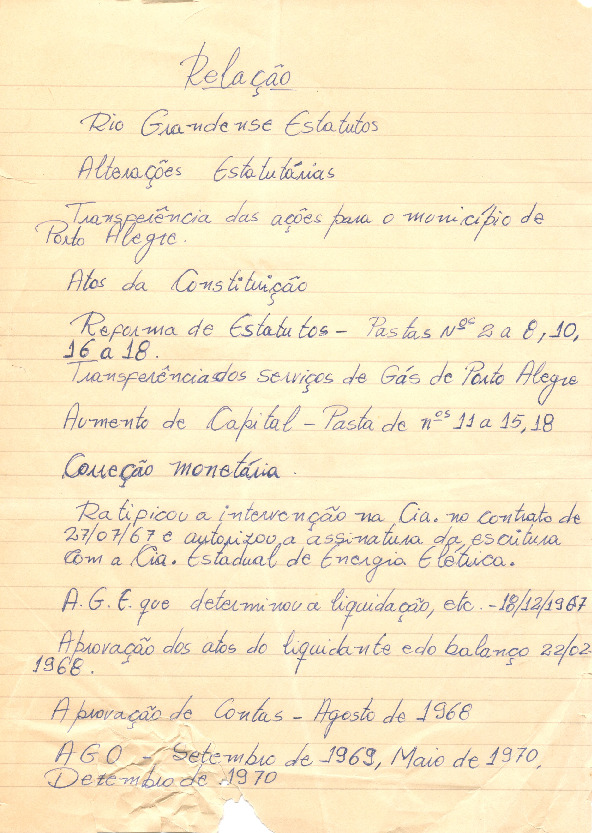 Relação
Rio Grandense Estatutos
Alterações Estatutárias
Transferência das ações para o município de
Porto Alegre.
Atos da Constituição
Reforma de Estatutos - Pastas Nºs 2 a 8, 10,
16 a 18.
Transferência dos serviços de Gás de Porto Alegre
Aumento de Capital - Pasta de nºs 11 a 15, 18
Correção monetária.
Ratificou a intervenção na Cia. no contrato de
27/07/67 e autorizou a assinatura da escritura
com a Cia. Estadual de Energia Elétrica.
A.G.E. que determinou a liquidação, etc. - 18/12/1967
Aprovação dos atos do liquidante e do balanço 22/02
1968.
Aprovação de Contas - Agosto de 1968
AGO - Setembro de 1969, Maio de 1970,
Dezembro de 1970